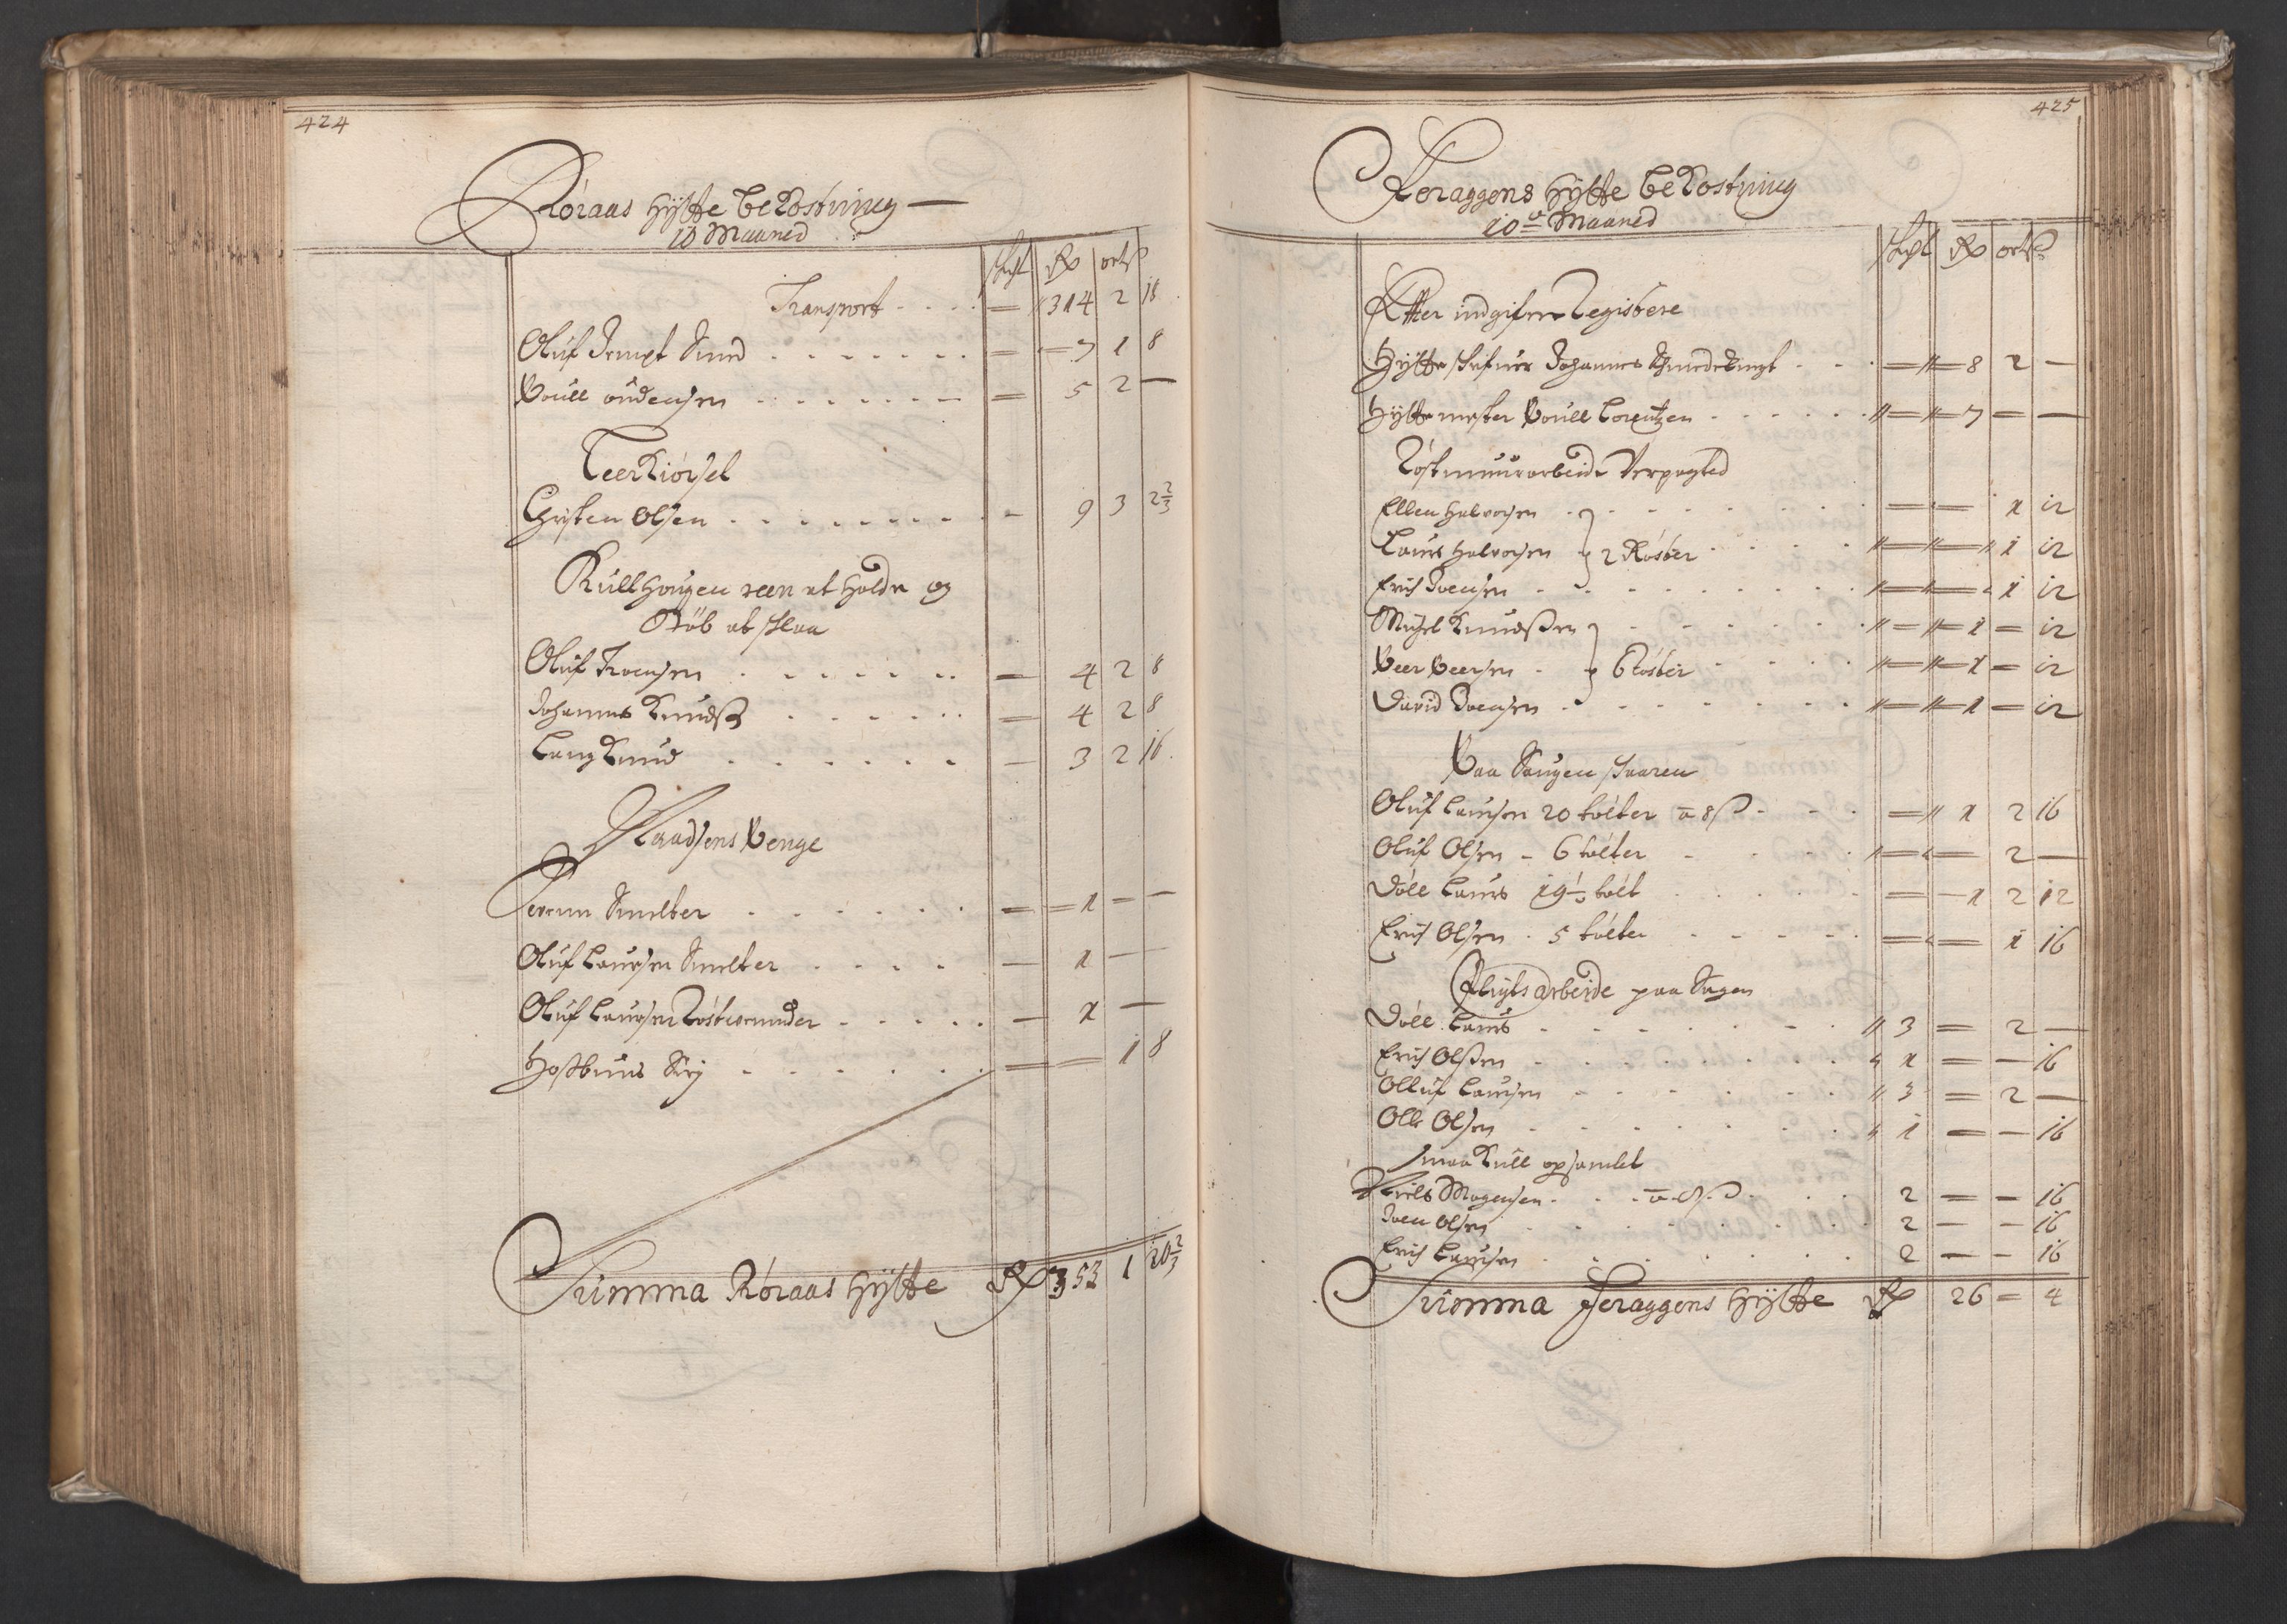 424
Røraas hÿtte bekostning —
10 Maaned
skt Rd ort ß
Transport . . . — 314 2 18
Oluf Jempt Smed . . . — 7 1 8
Poull oudensen . . . — 5 2 —
Teerkiørsel
Christen Olsen . . . — 9 3 2 2/3
Kullhougen reen at holde og
Støb at slaa
Oluf Iversen . . . — 4 2 8
Johannes Knudß . . . — 4 2 8
Lang Knud . . . — 3 2 16
Maadsens Penge
Smelter . . . — 1 — —
Oluf Laursen Smelter . . . — 1 —
Oluf Laursen Røstvender . . . — 1 —
Siri . . . — — 1 8
Summa Røraas hÿtte Rd 353 1 20 2/3
425
Feraggens hÿtte bekostning
10de Maaned
skt Rd ort ß
Effter indgifne Registere
Hÿtteskrifver Johannes . . . — 8 2 —
Hÿttemester Poull Lorentzen . . . — 7 — —
Røstmuurarbeide Verpagted
Ellen Halvorsen . . . — — 1 12
Laurs Halvorsen 2 Røster . . . — — 1 12
Erich Ivensen . . . — — 1 12
Michel Knudßen . . . — 1 — 12
Peer Peersen 6 Røster . . . — 1 — 12
David Ivensen . . . — 1 — 12
Paa Saugen skaaren
Oluf Laursen 20 tólter a 8 ß . . . — 1 2 16
Oluf Olsen - 6 tólter . . . — — 2 —
Dóll Laurs 19 1/2 tólt . . . — 1 2 12
Erich Olsen . 5 tólter . . . — — 1 16
arbeide paa Sagen
Dóll Laurs . . . 3 — 2 —
Erich Olßen . . . 1 — — 16
Olluf Laursen . . . 3 — 2 —
Olle Olsen . . . 1 — — 16
Smaa Kull opsamlet
Niels Mogensen . . . a 8 ß . . 2 — — 16
Iven Olsen . . . 2 — — 16
Erich Laursen . . . 2 — — 16
Summa Feraggens Hÿtte Rd 26 — 4